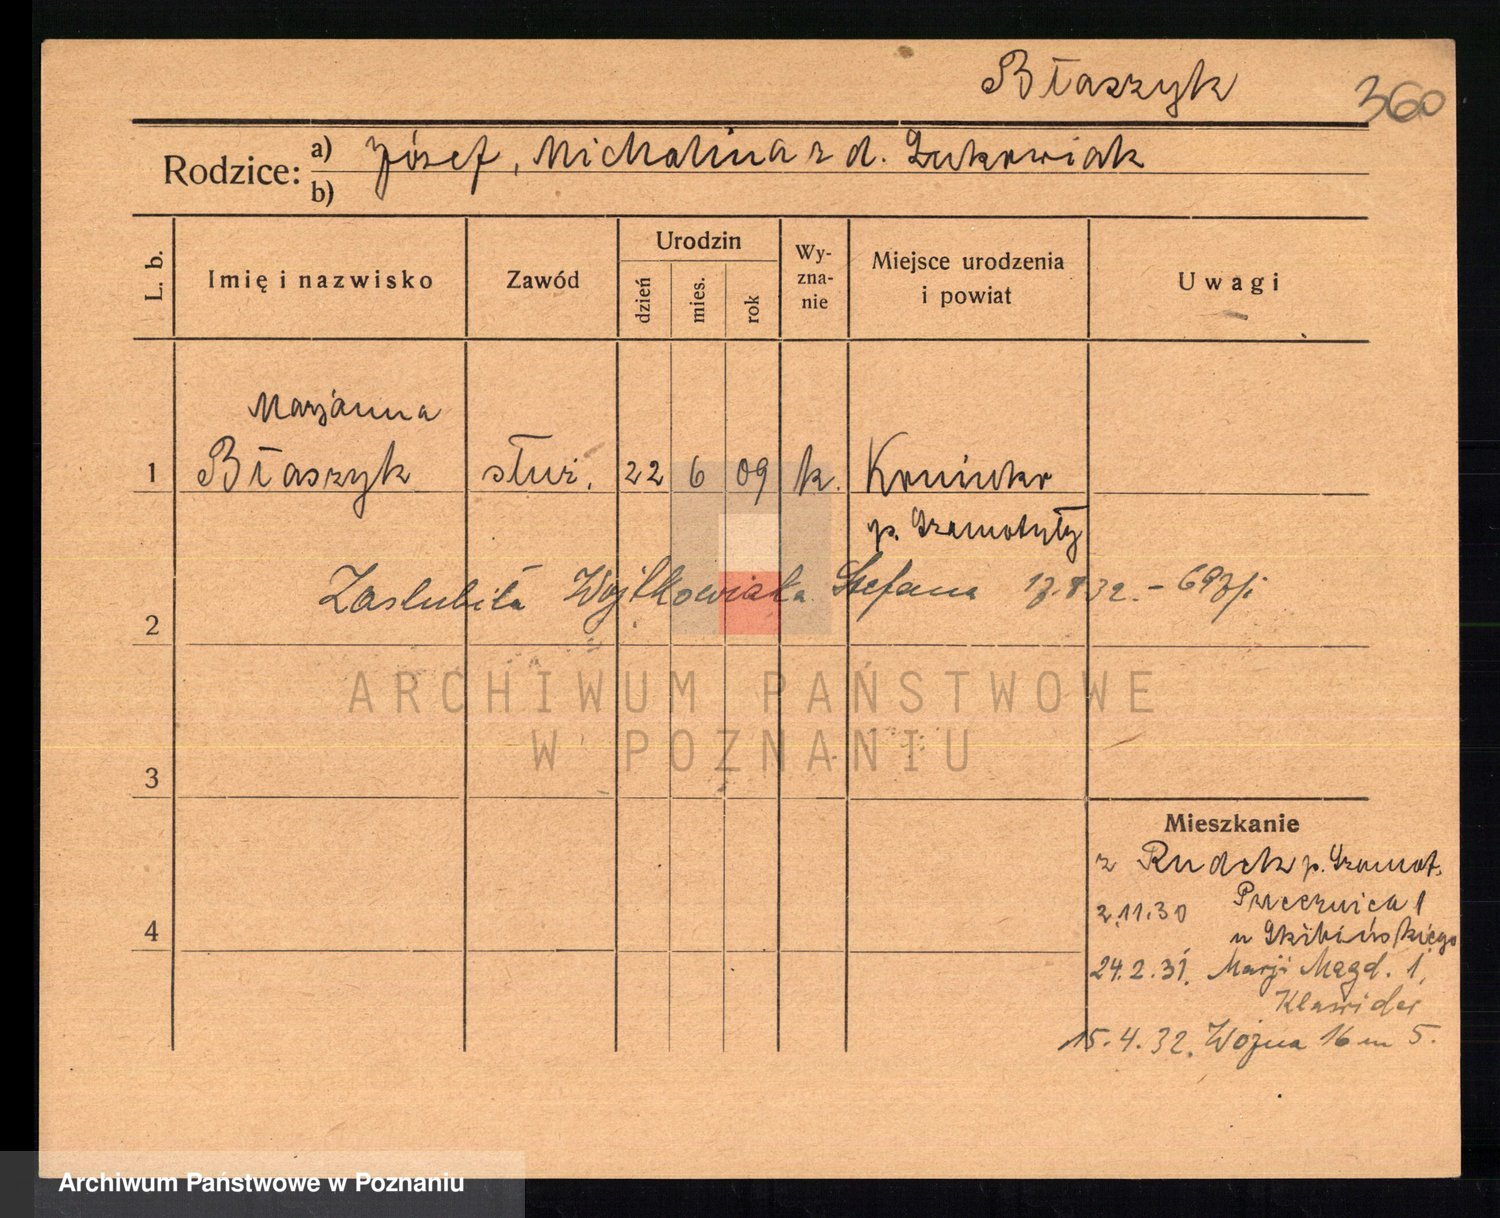 Błaszyk
360
Rodzice: a) Józef, Michalina z d. Łukowiak
b)
L. b.
Imię i nazwisko
Zawód
Urodzin
dzień
mies.
rok
Wy-
zna-
nie
Miejsce urodzenia
i powiat
Uwagi
Marjanna
1 Błaszyk służ. 22 6 09 k.
p. Szamotuły
Zaślubiła Wojtkowiaka Stefana
2
ARCHIWUM PAŃSTWOWE
W POZNANIU
3
Mieszkanie
z Rudek p. Szamot.
2.11.30
4
u Skibińskiego
24.2.31. Marji Magd. 1,
15.4.32. Woźna 16 m 5.
Archiwum Państwowe w Poznaniu